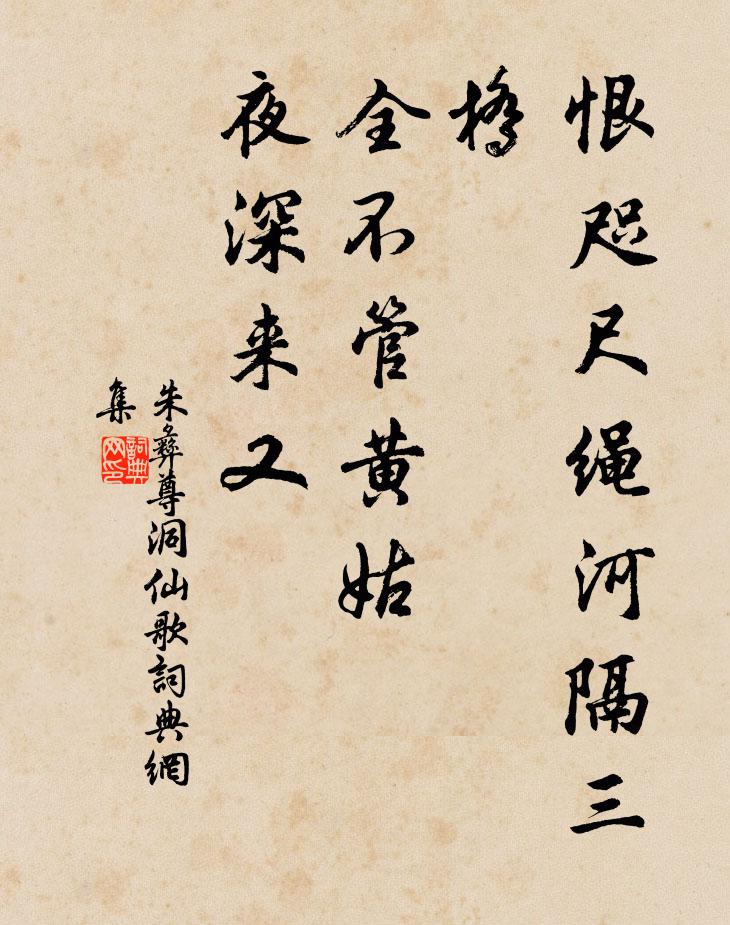 恨咫尺绳河隔三
桥
全不管黄姑
夜深来又
朱彝尊洞仙歌詞典網
集
詞典
网印